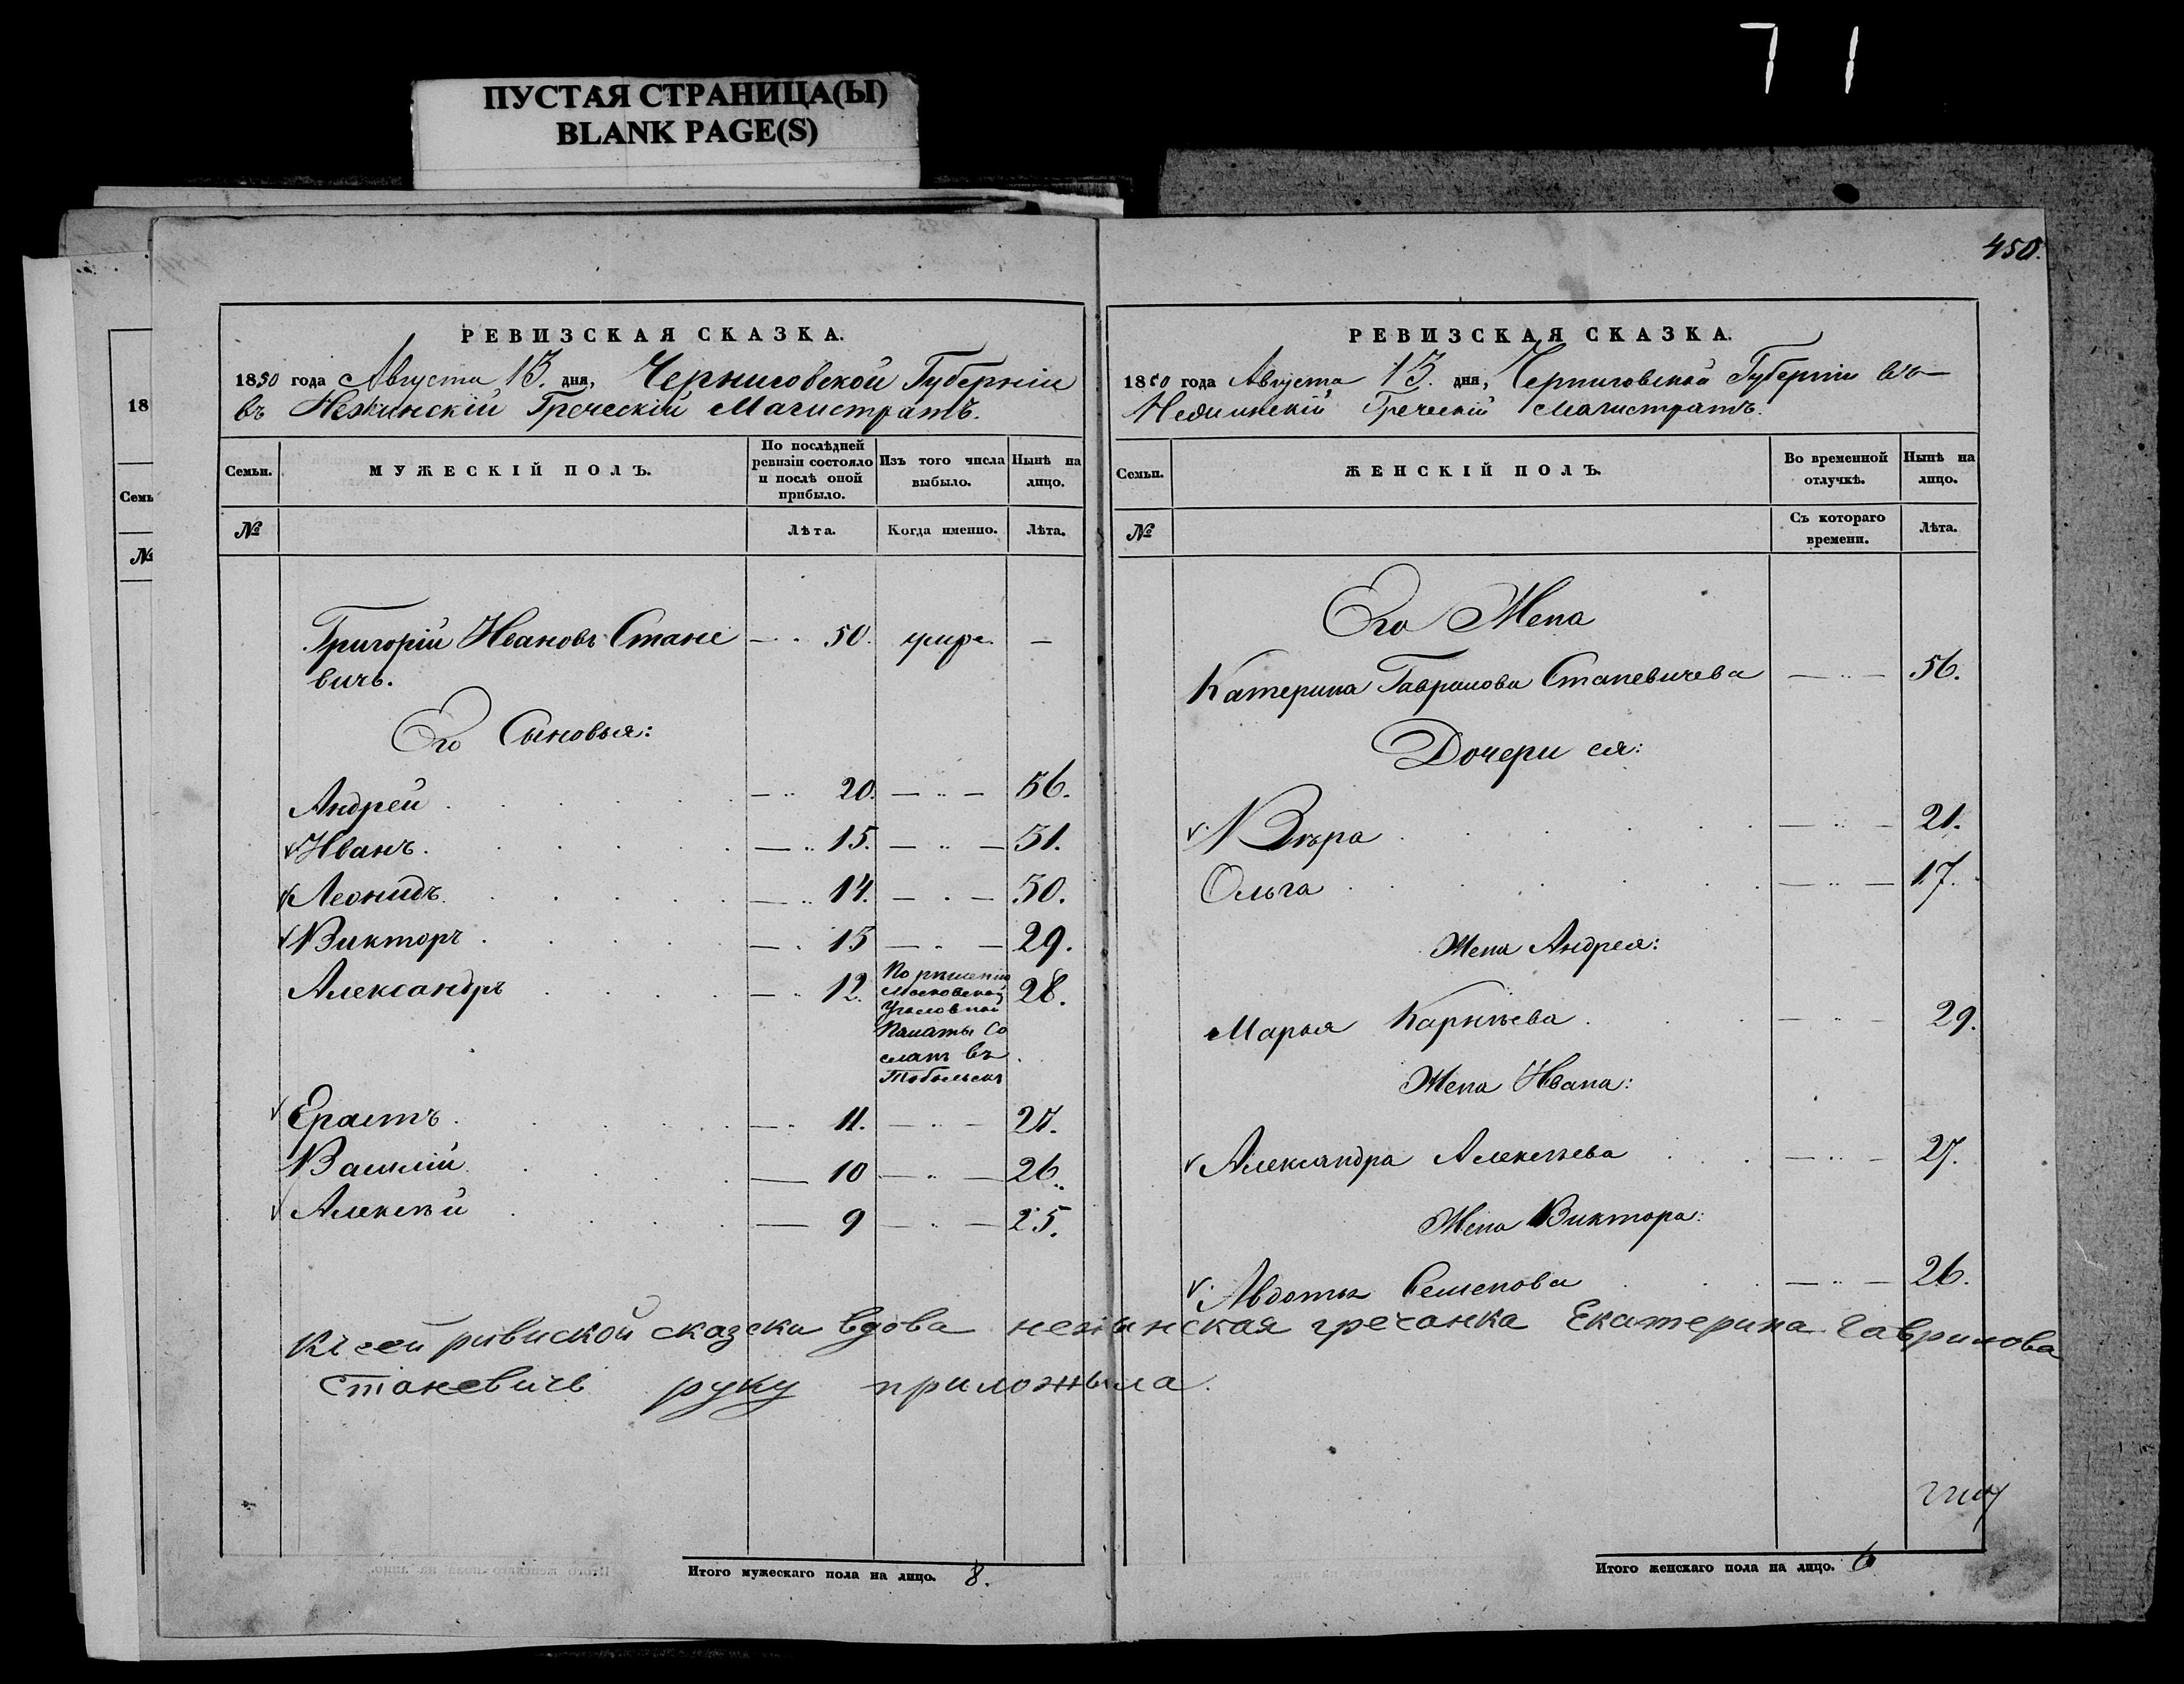 71
ПУСТАЯ СТРАНИЦА(Ы)
BLANK PAGE(S)
450.
РЕВИЗСКАЯ СКАЗКА.
1850 года Августа 13. дня, Черниговской Губерніи
въ Нежинскій Греческій Магистратъ.
Семьи.
МУЖЕСКІЙ ПОЛЪ.
По послѣдней ревизіи состояло и послѣ оной прибыло.
Изъ того числа выбыло.
Нынѣ на лицо.
№
Лѣта.
Когда именно.
Лѣта.
Григорій Ивановъ Стане — 50. умре —
вичъ.
Его Сыновья:
Андрей — 20. — 36.
Иванъ. — 15. — 31.
Леонидъ — 14. — 30.
Викторъ — 13 — 29.
Александръ — 12. 28.
По решенію
Московской
Уголовной
Палаты Со
сланъ въ
Тобольскъ
Ерастъ — 11. — 27.
Василій — 10 — 26.
Алексѣй — 9 — 25.
Итого мужескаго пола на лицо. 8.
РЕВИЗСКАЯ СКАЗКА.
1850 года Августа 13. дня, Черниговской Губерніи въ
Нежинскій Греческій Магистратъ.
Семьи.
ЖЕНСКІЙ ПОЛЪ.
Во временной отлучкѣ.
Нынѣ на лицо.
№
Съ котораго времени.
Лѣта.
Его Жена
Катерина Гаврилова Станевичева — 56.
Дочери ея:
Вѣра — 21.
Ольга — 17.
Жена Андрея:
Марья Карнѣева — 29.
Жена Ивана:
Александра Алексѣева — 27.
Жена Виктора:
Авдотья Семенова — 26.
Къ сей ривиской сказски вдова нежинская гречанка Екатерина Гаврилова
Станевичь руку приложыла.
Итого женскаго пола на лицо. 6
18
Семь
№